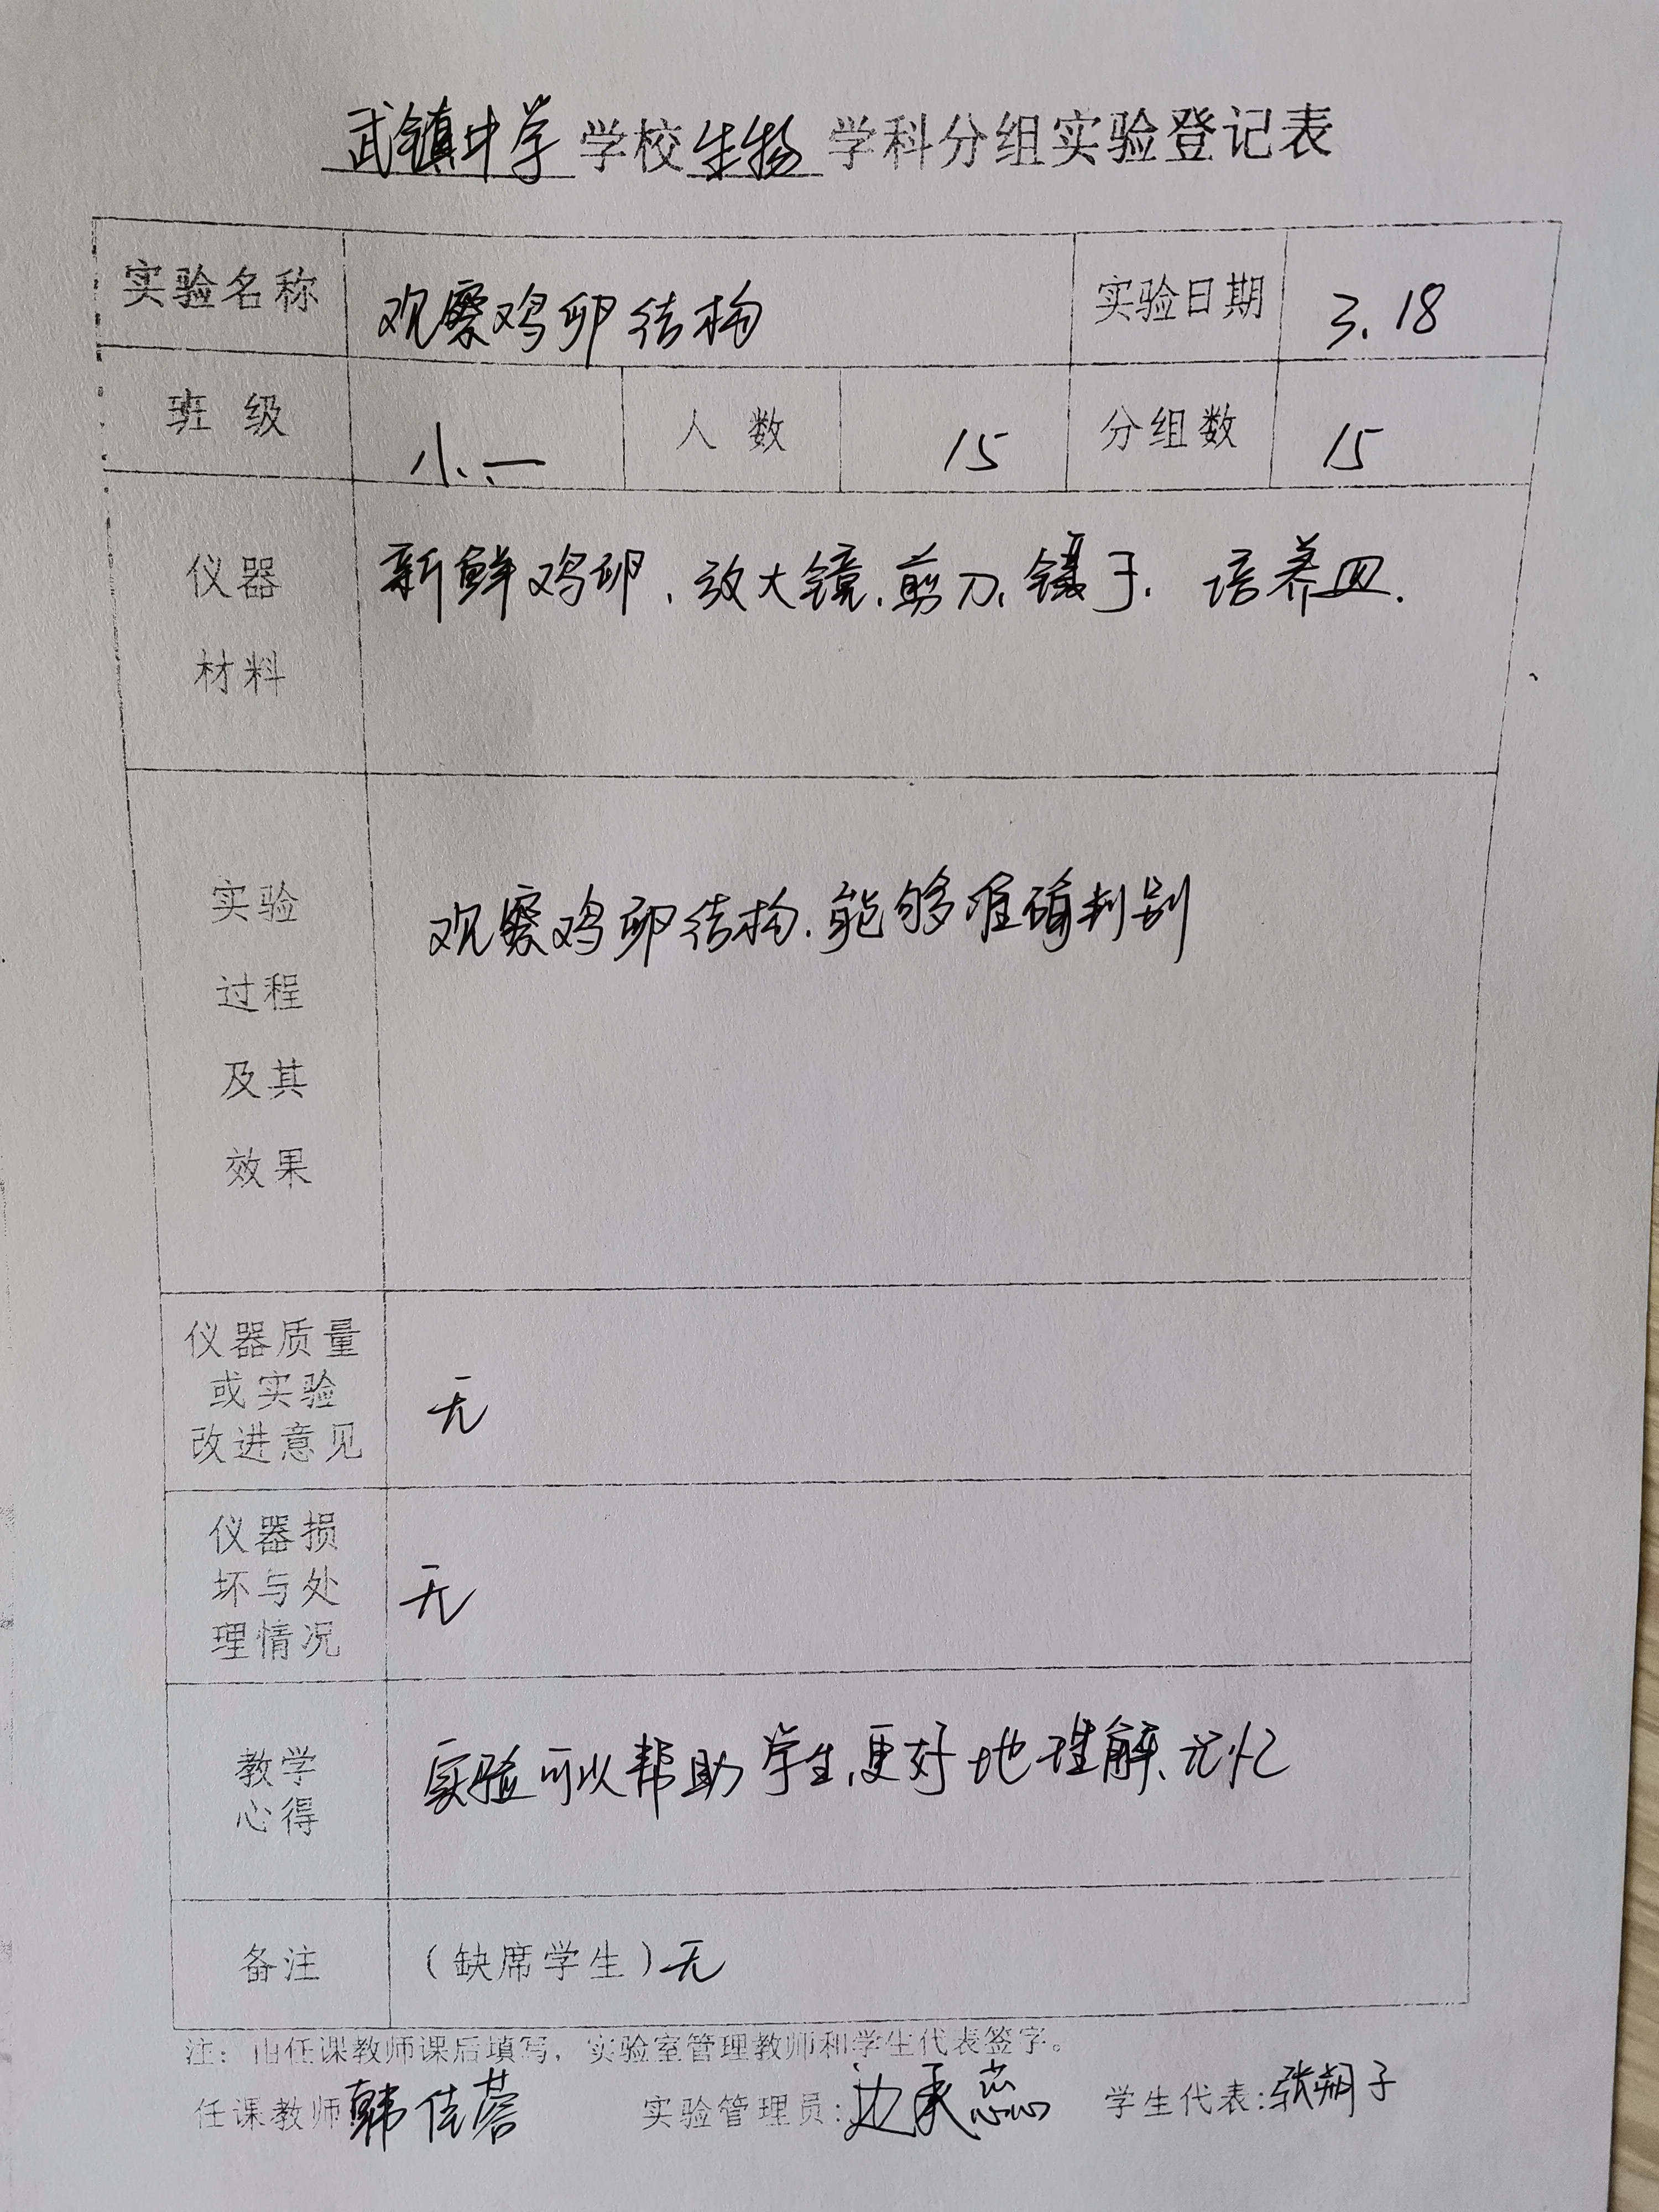 武镇中学 学校 生物 学科分组实验登记表
实验名称 观察鸡卵结构 实验日期 3.18
班级 八.一 人数 15 分组数 15
仪器 新鲜鸡卵、放大镜、剪刀、镊子、培养皿.
材料
实验 观察鸡卵结构、能够准确判别
过程
及其
效果
仪器质量
或实验
改进意见 无
仪器损
坏与处
理情况 无
教学
心得 实验可以帮助学生更好地理解、记忆
备注 （缺席学生）无
注：由任课教师课后填写，实验室管理教师和学生代表签字。
任课教师 韩佳蓉 实验管理员: 边承蕊 学生代表: 张朔子